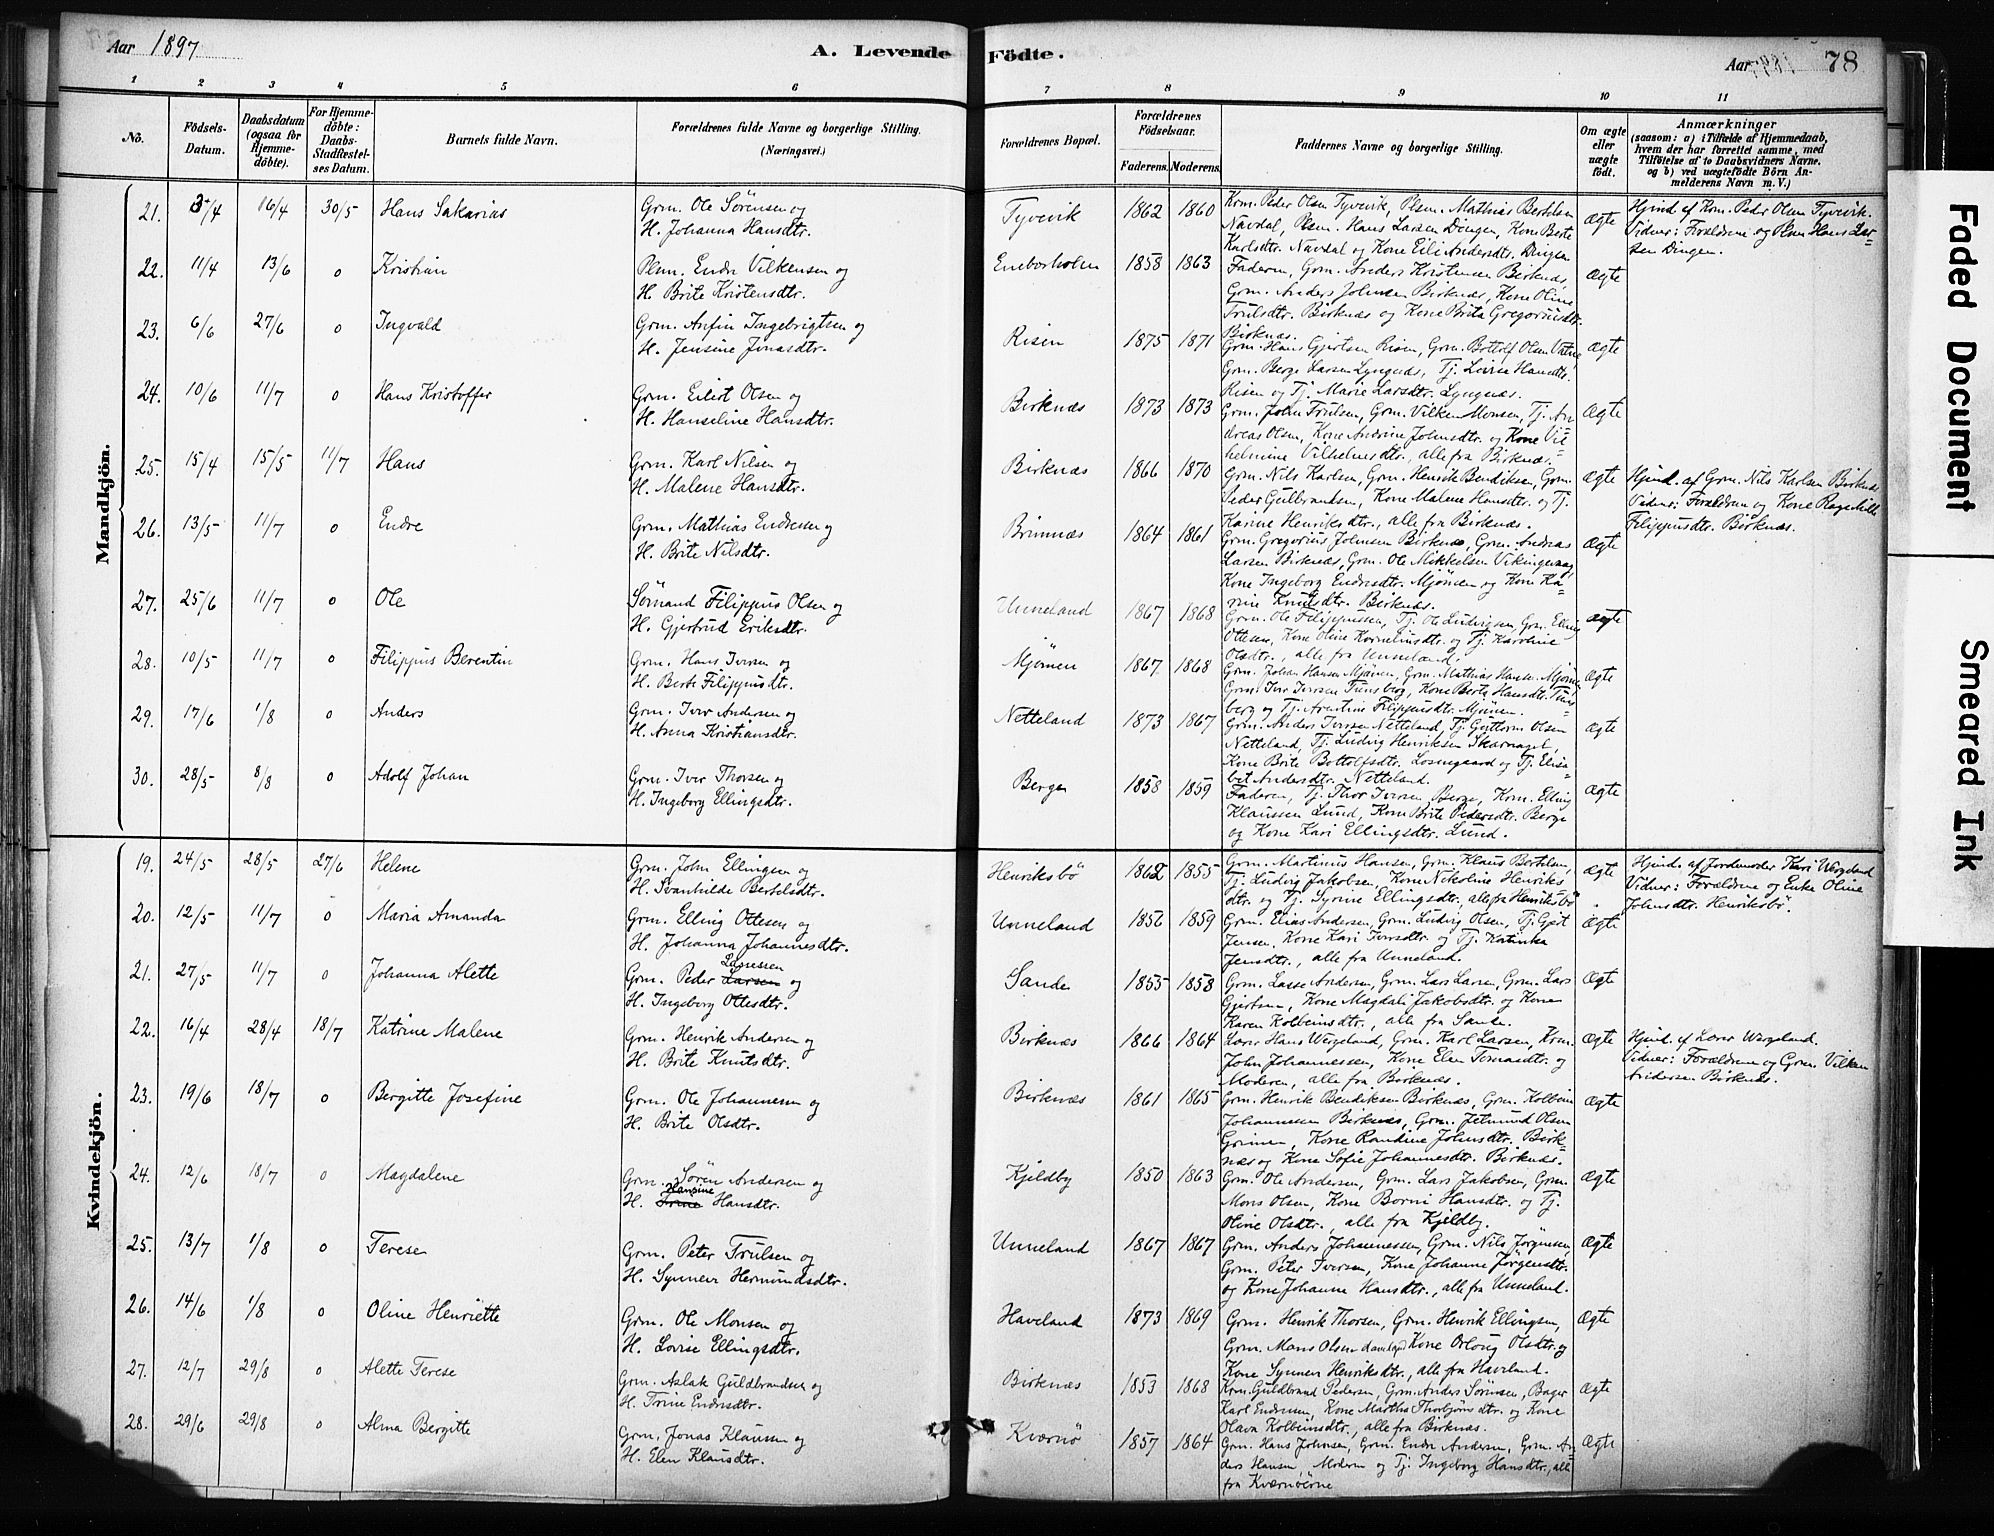 Aar 1897
A. Levende
Födte.
Aar
78
1 2 3 4 5 6 7 8 9 10 11
No.
Födsels-Datum.
Daabsdatum (ogsaa for Hjemmedöbte).
For Hjemmedöbte: Daabs-Stadfæstelses Datum.
Barnets fulde Navn.
Forældrenes fulde Navne og borgerlige Stilling. (Næringsvei.)
Forældrenes Bopæl.
Forældrenes Födselsaar.
Faderens. Moderens.
Faddernes Navne og borgerlige Stilling.
Om ægte eller uægte födt.
Anmærkninger
(saasom: a) i Tilfælde af Hjemmedaab, hvem der har forrettet samme, med Tilföielse af to Daabsvidners Navne. og b) ved uægtefödte Börn Anmelderens Navn m. V.)
Mandkjön.
21. 3/4 16/4 30/5 Hans Sakarias
Grm. Ole Sørensen og
H. Johanna Hansdtr.
Tyvevik 1862 1860
Krm. Peder Olsen Tyvevik, Plsm. Mathias Bertelsen
Navdal, Plsm. Hans Larsen Dingen, Kone Berte
Karlsdtr. Navdal og Kone Eili Andersdtr. Dingen
Ægte
Hjmd. af Krm. Peder Olsen Tyvevik.
Vidner: Forældrene og Plsm Hans Larsen Dingen.
22. 11/4 13/6 o Kristian
Plsm. Endre Vilkensen og
H. Brite Kristensdtr.
Eneborholm 1858 1863
Faderen, Grm. Anders Kristensen Birknæs,
Grm. Anders Johnsen Birknæs, Kone Oline
Trulsdtr. Birknæs og Kone Brita Gregoriusdtr.
Birknæs.
Ægte
23. 6/6 27/6 o Ingvald
Grm. Anfin Ingebrigtsen og
H. Jensine Jonasdtr.
Risen 1875 1871
Grm. Hans Gjertsen Risen, Grm. Bottolf Olsen
Grm. Berge Larsen Lyngnæs, Tj. Lovise Hansdtr.
Risen og Tj. Marie Larsdtr. Lyngnæs.
Ægte
24. 10/6 11/7 o Hans Kristoffer
Grm. Eilert Olsen og
H. Hanseline Hansdtr.
Birknæs 1873 1873
Grm. John Trulsen, Grm. Vilken Monsen, Tj. Andreas Olsen, Kone Andrine Johnsdtr. og Kone Vilhelmine Vilhelmsdtr., alle fra Birknæs.
Ægte
25. 15/4 15/5 11/7 Hans
Grm. Karl Nilsen og
H. Malene Hansdtr.
Birknæs 1866 1870
Grm. Nils Karlsen, Grm. Henrik Bendiksen, Grm.
Peder Gulbrandsen, Kone Malene Hansdtr. og Tj.
Karine Henriksdtr., alle fra Birknæs.
Ægte
Hjmd. af Grm. Nils Karlsen Birknæs
Vidner: Forældrene og Kone Ragnhilde
Filippusdtr. Birknæs.
26. 13/5 11/7 o Endre
Grm. Mathias Endresen og
H. Brite Nilsdtr.
Brimnæs 1864 1861
Grm. Gregorius Johnsen Birknæs, Grm. Andreas
Larsen Birknæs, Grm. Ole Mikkelsen
Kone Ingeborg Endresdtr. Mjömen og Kone Karine Knutsdtr. Birknæs.
Ægte
27. 25/6 11/7 o Ole
Sømand Filippus Olsen og
H. Gjertrud Eriksdtr.
Unneland 1867 1868
Grm. Ole Filippussen, Tj. Ole Ludvigsen, Grm. Elling
Ottesen, Kone Oline Korneliusdtr. og Tj. Karoline
Olsdtr., alle fra Unneland.
Ægte
28. 10/5 11/7 o Filippus Berentin
Grm. Hans Iversen og
H. Berte Filippusdtr.
Mjömen 1867 1868
Grm. Johan Hansen Mjömen, Grm. Mathias Hansen Mjömen
Grm. Iver Iversen Tunsberg, Kone Berta Hansdtr. Tunsberg og Tj. Arentine Filippusdtr. Mjömen.
Ægte
29. 17/6 1/8 o Anders
Grm. Iver Andersen og
H. Anna Kristiansdtr.
Netteland 1873 1867
Grm. Anders Iversen Netteland, Tj. Guttorm Olsen
Netteland, Tj. Ludvig Henriksen
Kone Brite Bottolfsdtr. Losnegaard og Tj. Elisabet Andersdtr. Netteland.
Ægte
30. 28/5 8/8 o Adolf Johan
Grm. Iver Thorsen og
H. Ingeborg Ellingsdtr.
Berge 1858 1859
Faderen, Tj. Thor Iversen Berge, Krm. Elling
Klaussen Lund, Kone Brite Pedersdtr. Berge
og Kone Kari Ellingsdtr. Lund.
Ægte
Kvindekjön.
19. 24/5 28/5 27/6 Helene
Grm. John Ellingsen og
H. Svanhilde Bertelsdtr.
Henriksbö 1862 1855
Grm. Martinus Hansen, Grm. Klaus Bertelsen,
Tj. Ludvig Jakobsen, Kone Nikoline Henriks
dtr. og Tj. Syrine Ellingsdtr., alle fra Henriksbö
Ægte
Hjmd. af Jordmoder Kari Wergeland
Vidner: Forældrene og Enke Oline
Johnsdtr. Henriksbö.
20. 12/5 11/7 o Maria Amanda
Grm. Elling Ottesen og
H. Johanna Johannesdtr.
Unneland 1856 1859
Grm. Elias Andersen, Grm. Ludvig Olsen, Tj. Gjert
Jensen, Kone Kari Iversdtr. og Tj. Katinka
Jensdtr., alle fra Unneland.
Ægte
21. 27/5 11/7 o Johanna Alette
Lassesen
Grm. Peder Larsen og
H. Ingeborg Ottesdtr.
Sande 1855 1858
Grm. Lasse Andersen, Grm. Lars Larsen, Grm. Lars
Gjertsen, Kone Magdali Jakobsdtr. og Kone
Karen Kolbeinsdtr., alle fra Sande.
Ægte
22. 16/4 28/4 18/7 Katrine Malene
Grm. Henrik Andersen og
H. Brite Knutsdtr.
Birknæs 1866 1864
Lærer Hans Wergeland, Grm. Karl Larsen, Krm.
John Johannessen, Kone Elen Tomasdtr. og
Moderen, alle fra Birknæs.
Ægte
Hjmd. af Lærer Wergeland.
Vidner: Forældrene og Grm. Vilken
Andersen Birknæs.
23. 19/6 18/7 o Bergitte Josefine
Grm. Ole Johannesen og
H. Brite Olsdtr.
Birknæs 1861 1865
Grm. Henrik Bendiksen Birknæs, Grm. Kolbein
Johannessen Birknæs, Grm. Jetmund Olsen
Grimen, Kone Randine Johnsdtr. Birknæs og Kone Sofie Johannesdtr. Birknæs.
Ægte
24. 12/6 18/7 o Magdalene
Grm. Sören Andersen og
Hansine
H. Trine Hansdtr.
Kjeldby 1850 1863
Grm. Ole Andersen, Grm. Lars Jakobsen, Grm.
Mons Olsen, Kone Borni Hansdtr. og Tj.
Oline Olsdtr., alle fra Kjeldby.
Ægte
25. 13/7 1/8 o Terese
Grm. Peter Trulsen og
H. Synneve Hermundsdtr.
Unneland 1867 1867
Grm. Anders Johannessen, Grm. Nils Jörgensen,
Grm. Peter Iversen, Kone Johanne Jörgensdtr.
og Kone Johanne Hansdtr., alle fra Unneland.
Ægte
26. 14/6 1/8 o Oline Henriette
Grm. Ole Monsen og
H. Lovise Ellingsdtr.
Haveland 1873 1869
Grm. Henrik Thorsen, Grm. Henrik Ellingsen,
Grm. Mons Olsen Haveland, Kone Orloug Olsdtr. og
Kone Synneve Henriksdtr., alle fra Haveland.
Ægte
27. 12/7 29/8 o Alette Terese
Grm. Aslak Guldbrandsen og
H. Trine Endresdtr.
Birknæs 1853 1868
Krm. Guldbrand Pedersen, Grm. Anders Sörensen, Bager
Karl Endresen, Kone Marthe Thorbjörnsdtr. og Kone
Olava Kolbeinsdtr., alle fra Birknæs.
Ægte
28. 29/6 29/8 o Alma Bergitte
Grm. Jonas Klausen og
H. Elen Klausdtr.
Kværnö 1857 1864
Grm. Hans Johnsen, Grm. Endre Andersen, Grm. Anders Hansen, Moderen og Tj. Ingeborg Hansdtr., alle
fra Kværnöerne
Ægte
Faded Document
Smeared Ink